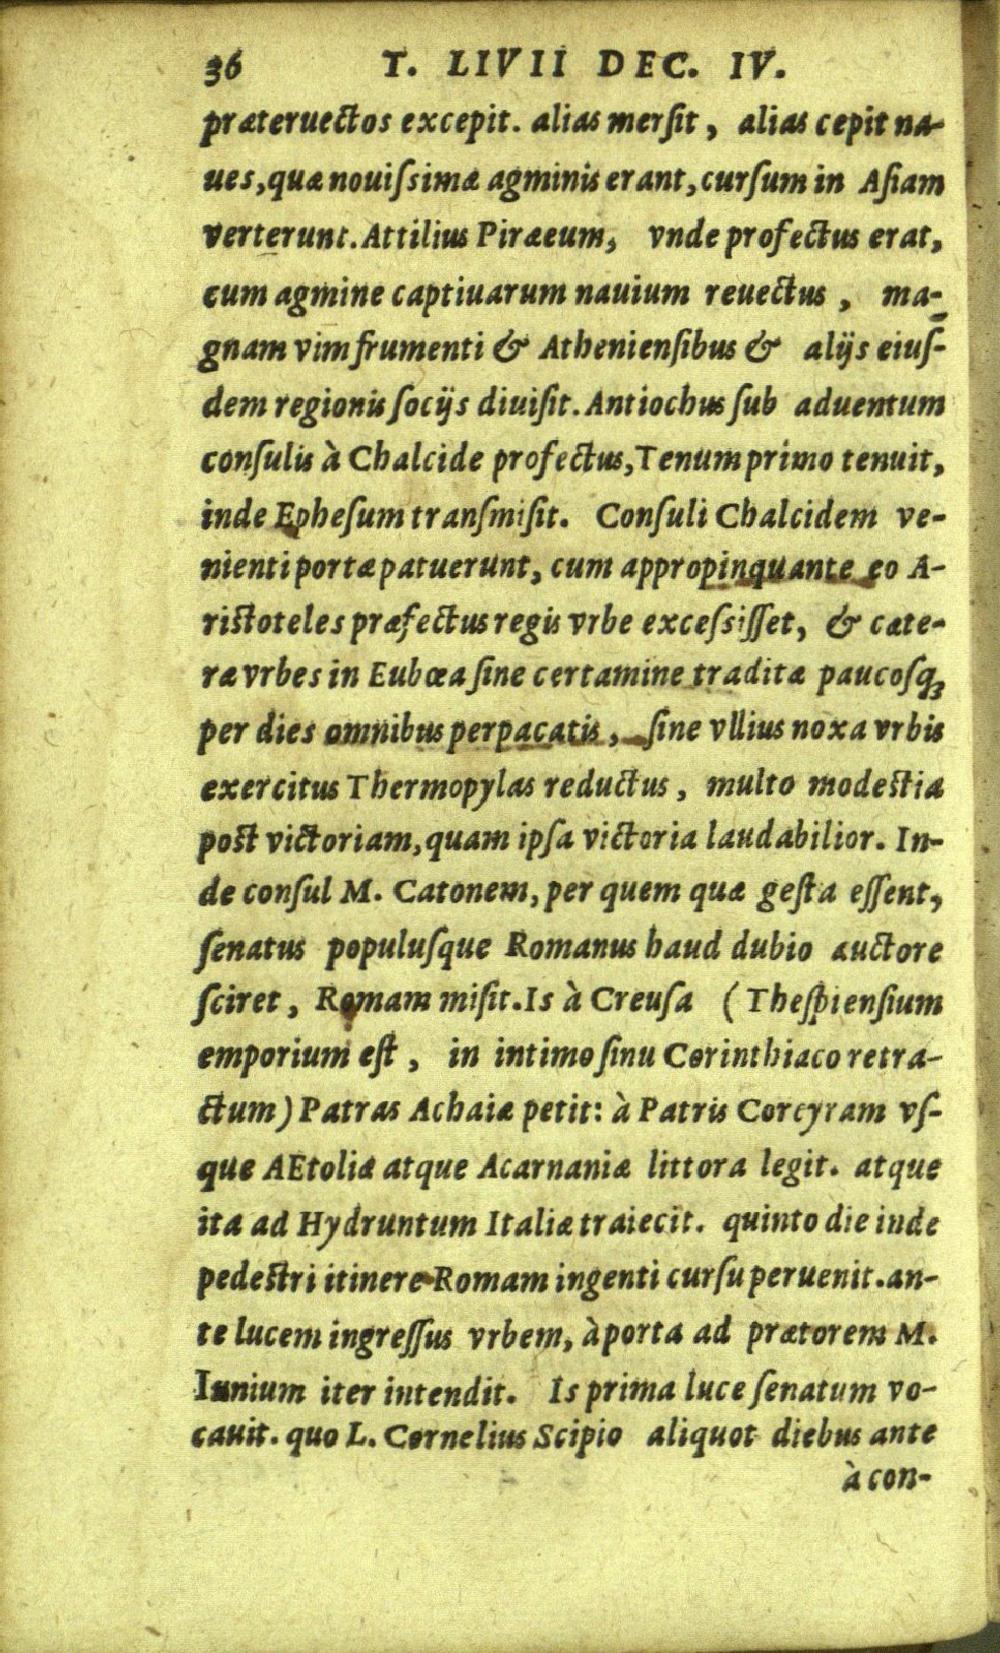 36 T. LIVII DEC. IV.
præteruectos excepit. alias mersit, alias cepit na-
ues, quæ nouissimæ agminis erant, cursum in Asiam
verterunt. Attilius Piræeum, vnde profectus erat,
cum agmine captiuarum nauium reuectus, ma-
gnam vim frumenti & Atheniensibus & alijs eius-
dem regionis socijs diuisit. Antiochus sub aduentum
consulis à Chalcide profectus, Tenum primo tenuit,
inde Ephesum transmisit. Consuli Chalcidem ve-
nienti portæ patuerunt, cum appropinquante eo A-
ristoteles præfectus regis vrbe excessisset, & cæte-
ræ vrbes in Eubœa sine certamine traditæ paucosq;
per dies omnibus perpacatis, sine vllius noxa vrbis
exercitus Thermopylas reductus, multo modestia
post victoriam, quam ipsa victoria laudabilior. In-
de consul M. Catonem, per quem quæ gesta essent,
senatus populusque Romanus haud dubio auctore
sciret, Romam misit. Is à Creusa (Thespiensium
emporium est, in intimo sinu Corinthiaco retra-
ctum) Patras Achaiæ petit: à Patris Corcyram vs-
que AEtoliæ atque Acarnaniæ littora legit. atque
ita ad Hydruntum Italiæ traiecit. quinto die inde
pedestri itinere Romam ingenti cursu peruenit. an-
te lucem ingressus vrbem, à porta ad prætorem M.
Iunium iter intendit. Is prima luce senatum vo-
cauit. quo L. Cornelius Scipio aliquot diebus ante
à con-